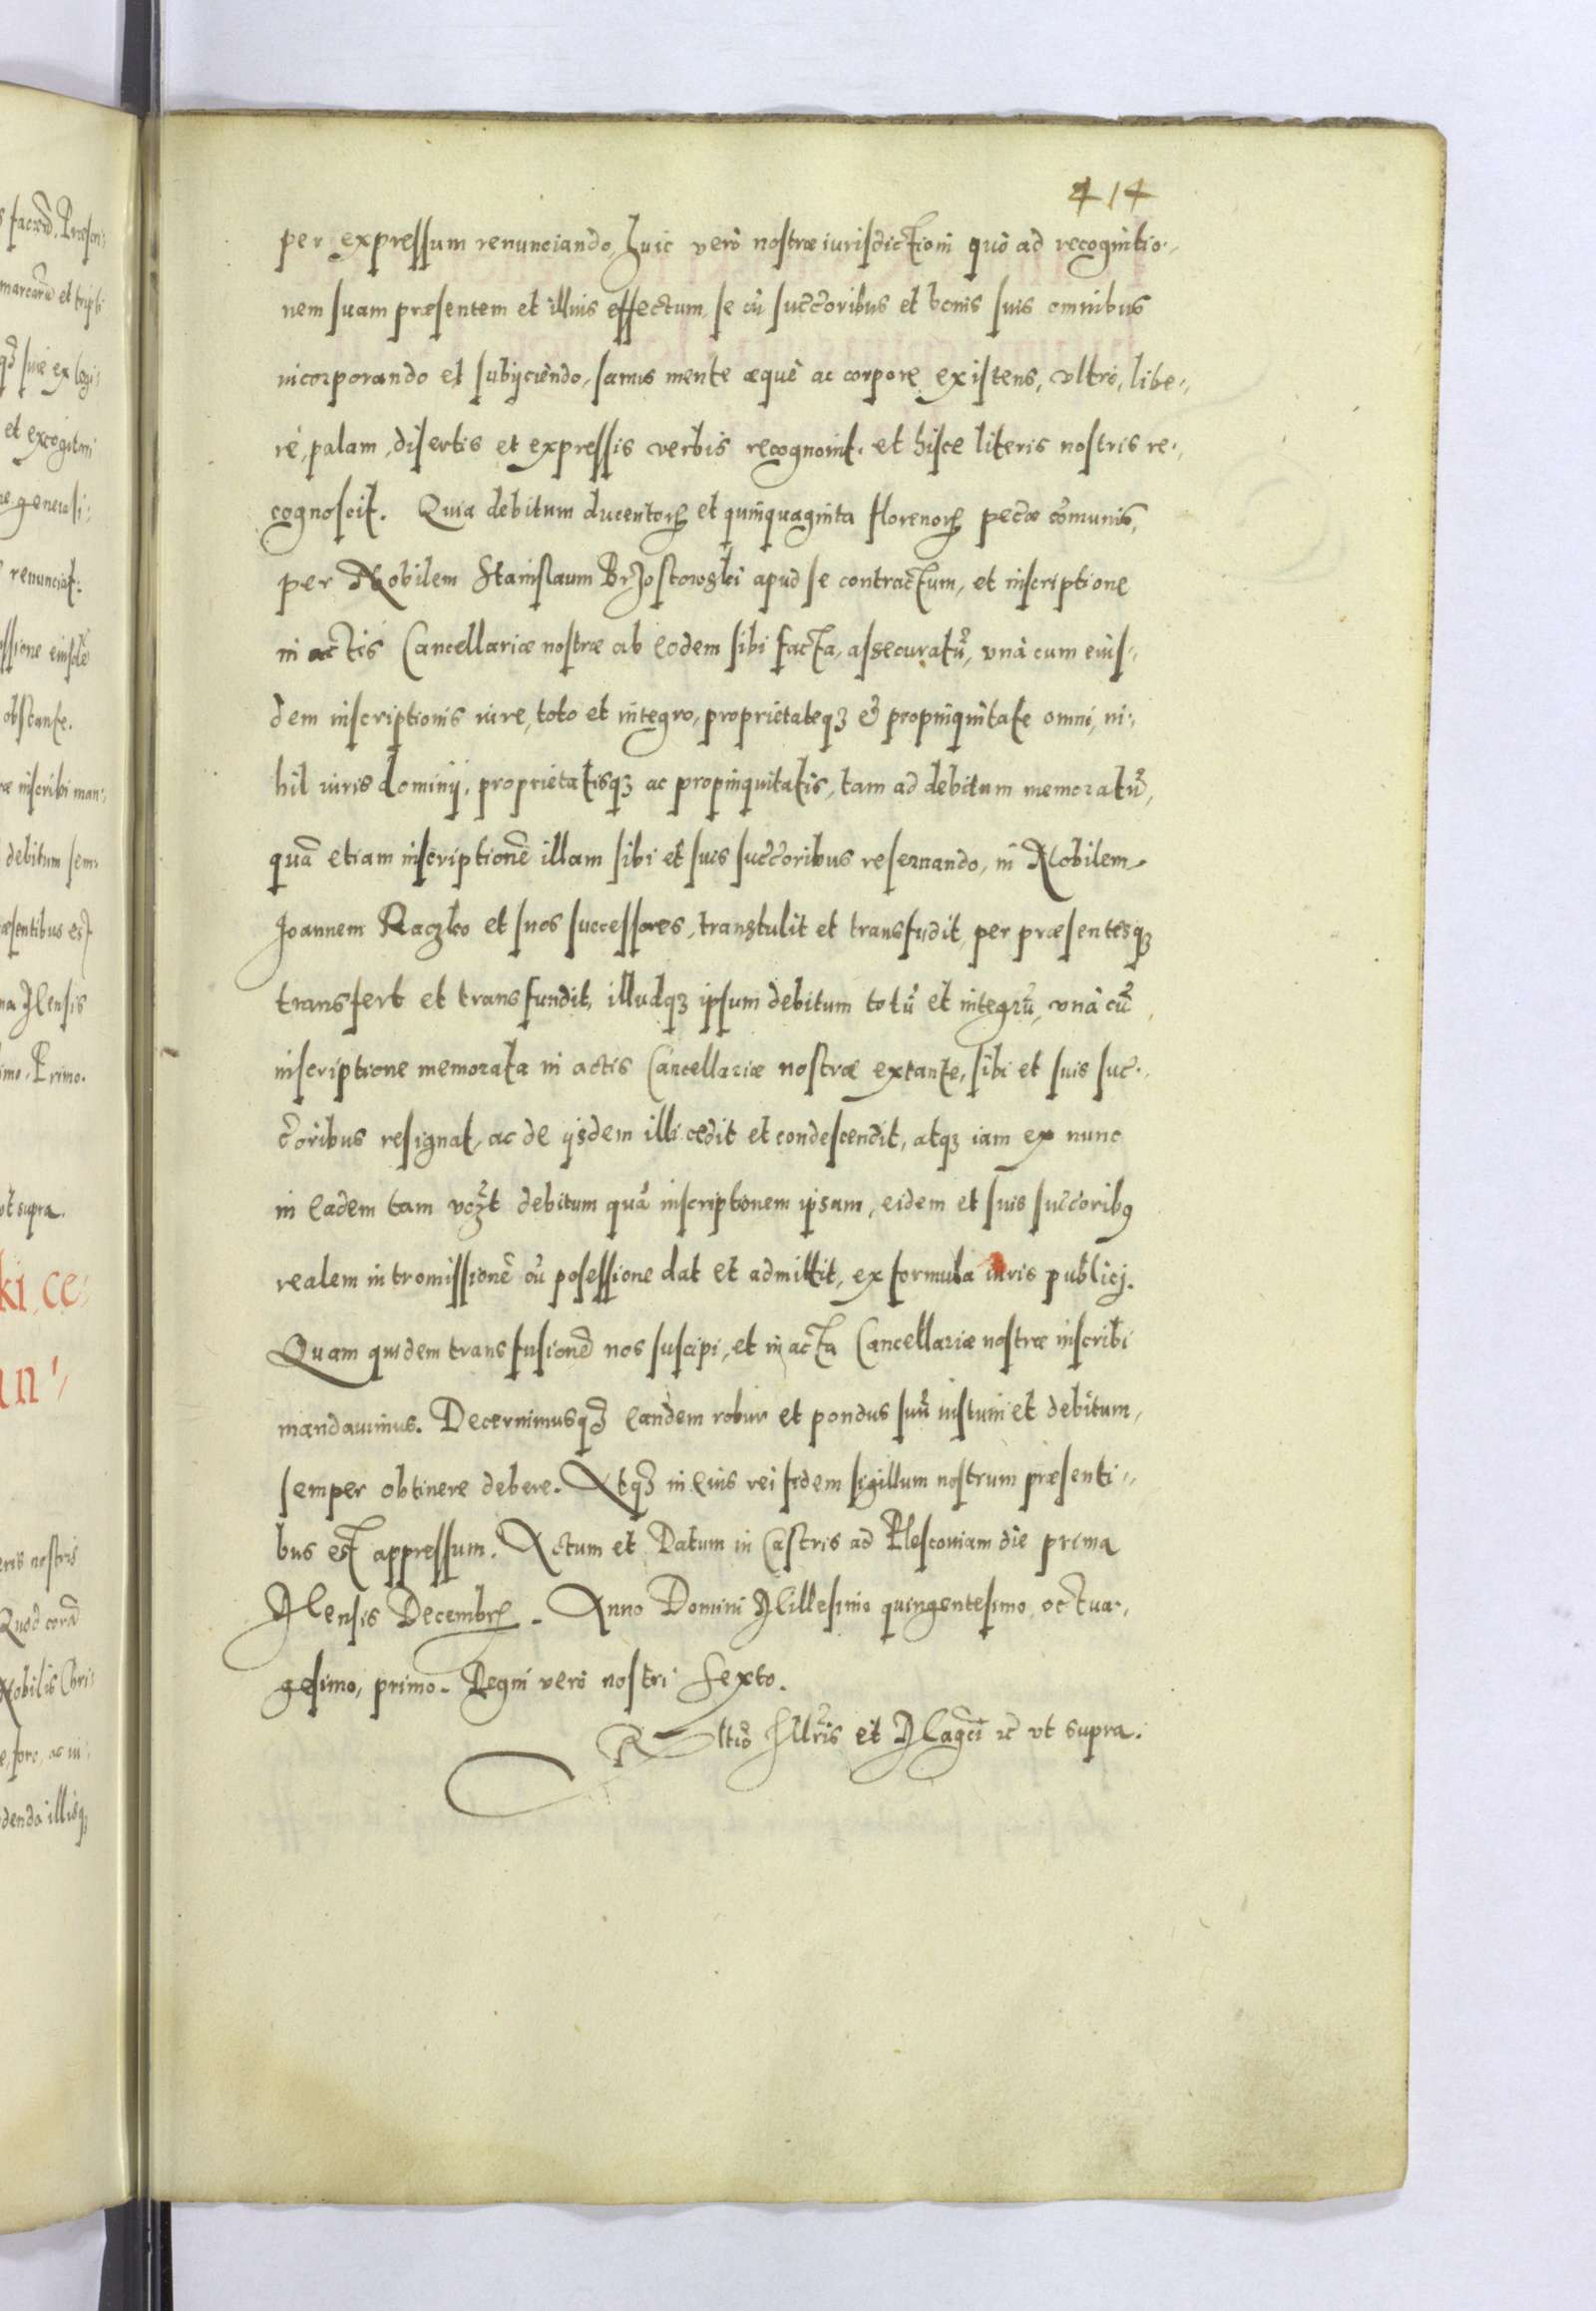 414
per expressum renunciando, huic verò nostræ iurisdictioni quò ad recognitio-
nem suam præsentem et illius effectum, se cū succ̄oribus et bonis suis omnibus
incorporando et subijciendo, sanus mente æquè ac corpore existens, vltrò, libe-
rè, palam, disertis et expressis verbis recognouit. et hisce literis nostris re-
cognoscit. Quia debitum ducentorꝝ et quinquaginta florenorꝝ pecūæ com̄unis,
per Nobilem Stanislaum Brzostowski apud se contractum, et inscriptione
in actis Cancellariæ nostræ ab eodem sibi facta, assecuratū, vnà cum eius-
dem inscriptionis iure, toto et integro, proprietateqꝫ & propinquitate omni, ni-
hil iuris dominij, proprietatisqꝫ ac propinquitatis, tam ad debitum memoratū,
quā etiam inscriptionē illam sibi et suis succ̄oribus reseruando, in Nobilem
Joannem Raczko et suos successores, transtulit et transfudit, per præsentesqꝫ
transfert et transfundit, illudqꝫ ipsum debitum totū et integrū, vnà cū
inscriptione memorata in actis Cancellariæ nostræ extante, sibi et suis suc-
c̄oribus resignat, ac de ijsdem illi cedit et condescendit, atqꝫ iam ex nunc
in eadem tam vcꝫt debitum quā inscriptionem ipsam, eidem et suis succ̄oribꝯ
realem intromissionē cū posessione dat et admittit, ex formula iuris publici.
Quam quidem transfusionē nos suscipi, et in acta Cancellariæ nostræ inscribi
mandauimus. Decernimusqꝫ eandem robur et pondus suū iustum et debitum,
semper obtinere debere. Atqꝫ in eius rei fidem sigillum nostrum præsenti-
bus est appressum. Actum et Datum in Castris ad Plescouiam die prima
Mensis Decembrꝭ. Anno Domini Millesimo quingentesimo octua-
gesimo, primo. Regni verò nostri Sexto.
Rltiō Illris et Magci ꝛc̄ vt supra.
s sacrād. Præsen-
marcarū et tripli
qꝫ siue ex legi-
et excogitari
generosi-
renunciat.
ssione eiusdē
obstante.
inscribi man-
debitum sem-
æsentibus est
Mensis
imo. Primo.
vt supra.
ki, ce-
in-
eris nostris
Quod corā
Nobilis Chri-
foro, ac in-
denda illisqꝫ